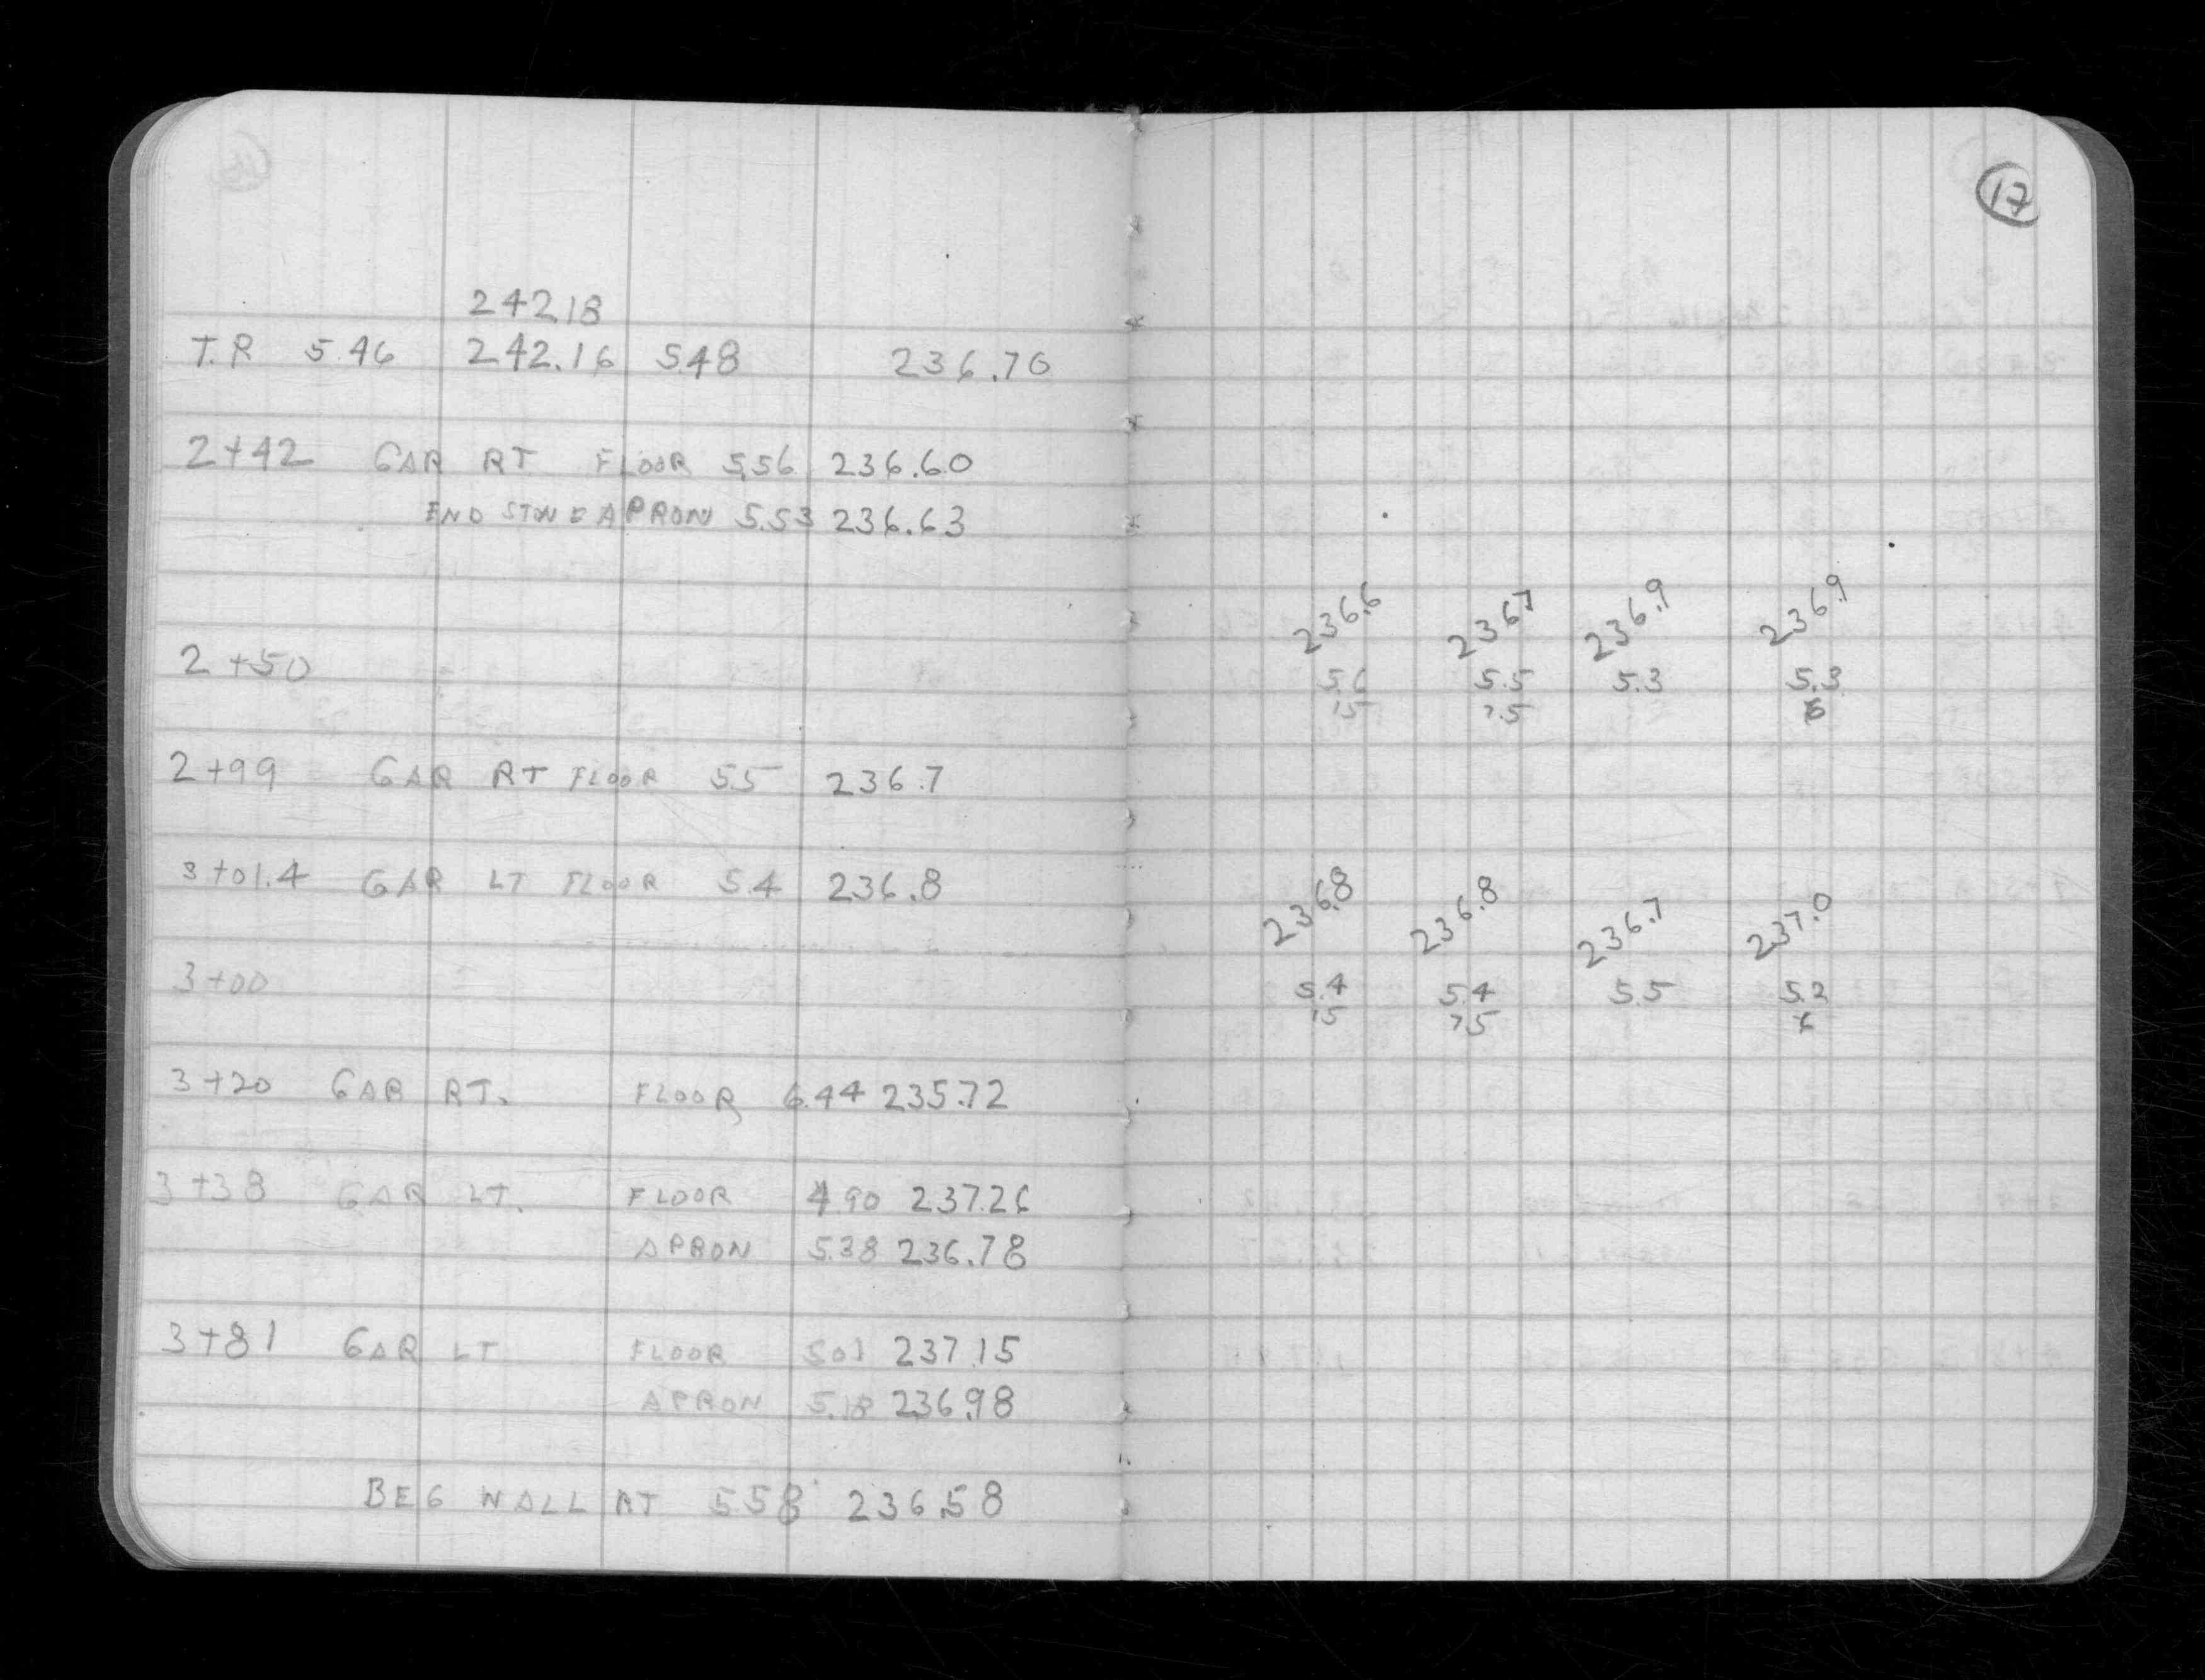 17
242.18
T.P 5.46 242.16 5.48 236.70
2+42 GAR RT FLOOR 5.56 236.60
END STONE APRON 5.53 236.63
236.6 236.7 236.9 236.9
2+50 5.6 5.5 5.3 5.3
15 7.5
2+99 GAR RT FLOOR 5.5 236.7
3+01.4 GAR LT FLOOR 5.4 236.8
236.8 236.8 236.7 237.0
3+00 5.4 5.4 5.5 5.2
15 75
3+20 GAR RT. FLOOR 6.44 235.72
3+38 GAR LT. FLOOR 4.90 237.26
APRON 5.38 236.78
3+81 GAR LT FLOOR 5.01 237.15
APRON 5.18 236.98
BEG WALL AT 5.58 236.58